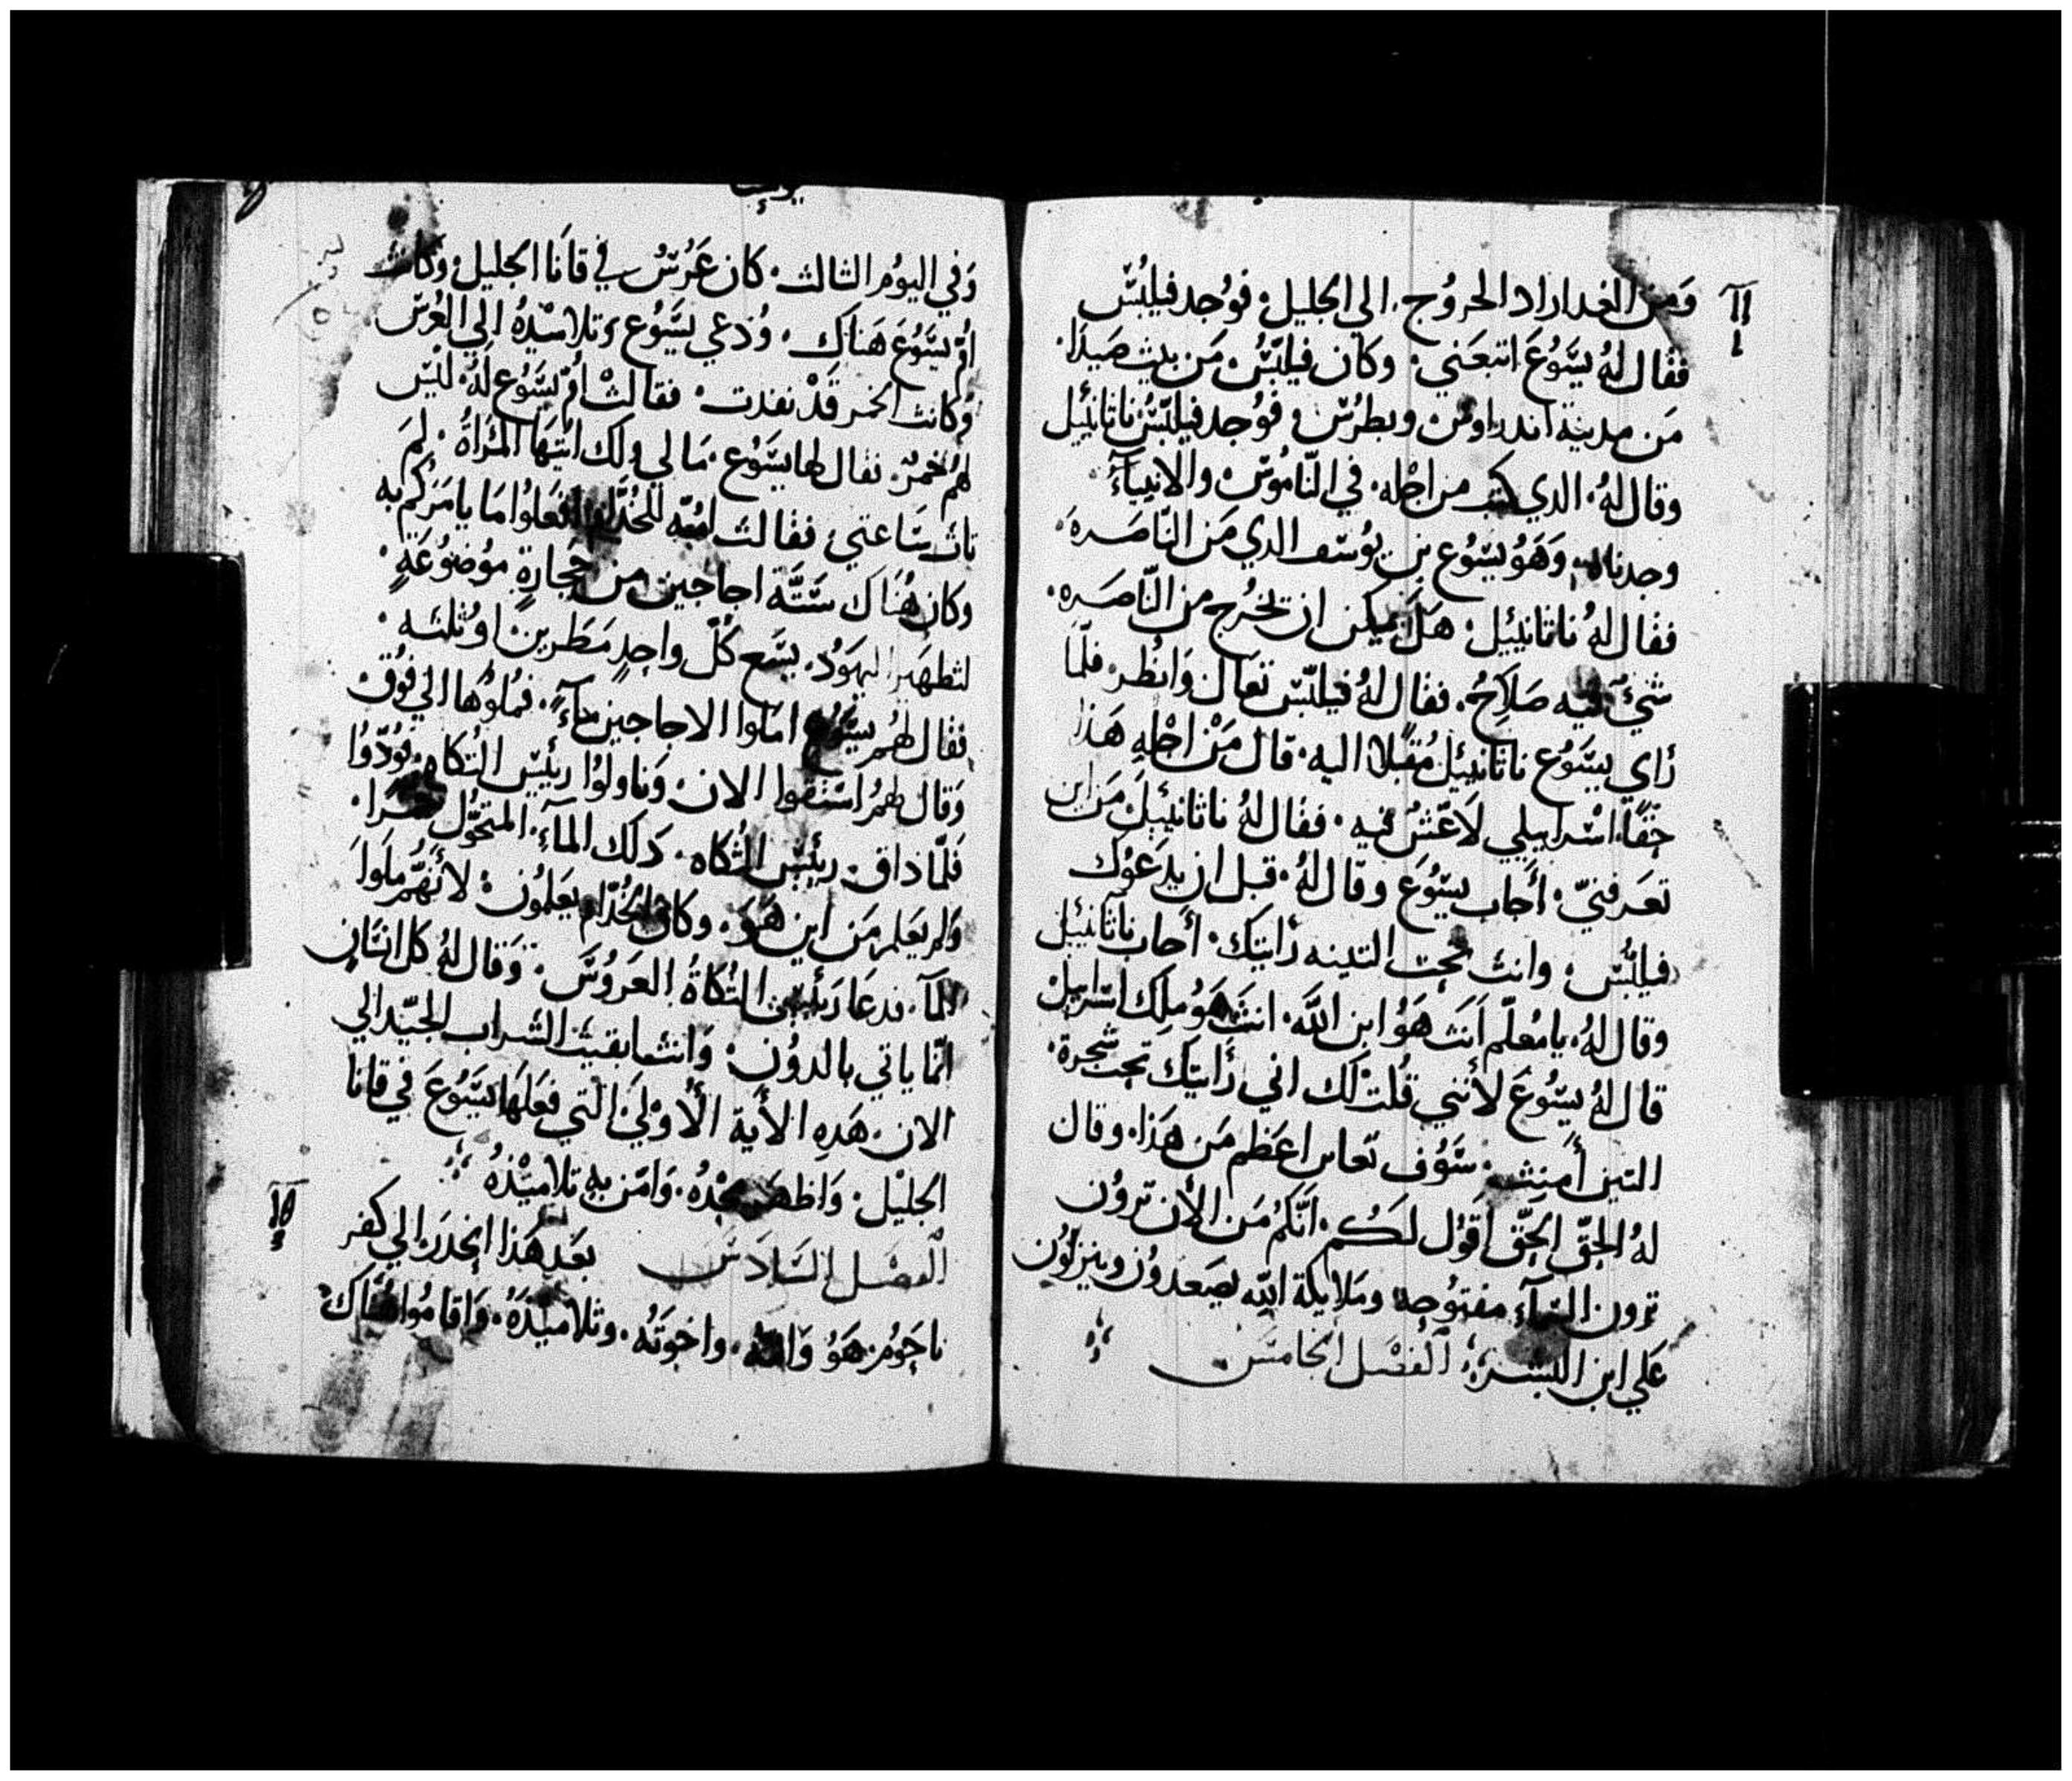 وَمن الغد اراد الخروُج. الي الجليل. فوُجد فيلبُسّ
فقال لهُ يسَّوُعَ اتبعَني. وكان فيلبّسُ. مَن بيت صَيدَا.
مَن مدينة اندراوسُ وبطرُسّ. فوُجد فيلبّسُ ناثانئيل
وقال لهُ. الدي كتب من اجْله. في النّامُوسّ. والانبيآءَ
وجدناه. وَهَوُ يسّوُع بن يوُسّف الدي مَن النّاصَره.
فقال لهُ ناثانييل. هَلَ يمكن ان يخرُج من النّاصَره.
شيءٌ فيه صَلاحُ. فقال لهُ فيلبّسّ تعَال وَانظُر. فلمّا
رَاي يسَّوُع ناثانييل مُقبلا اليه. قال مَنْ اجْله هَذا
حَقًا. اسْراييلي لاَ غشُّ فيه. فقال لهُ ناثانييل. مَن اين
تعَرفنيّ. أَجاب يسّوُعَ وقال لهُ. قبل ان يدعَوُك
فيلبُّسّ. وانت تحت التينه رَايتك. أجاب ناثانئيل
وقال لهُ. يا مُعلّم اَنتَ هَوُ ابن اللَّه. انتَ هَوُ ملك اسّراييل
قال لهُ يسّوُعَ لأنني قُلت لك اني رَأيتك تحت شجرة.
التين أمنت. سَّوُف تعاين اعَظم مَن هَذا. وقال
لهُ الحقّ الحقّ اَقوُل لكُم. انَّكمُ مَن الأن تروُن
ترون السّمآءَ مفتوُحه. ومَلايكة اللّه يصَعَدوُن وينزلوُن
عَلي ابن البشر. الفصْل الخامسَ
يوحنا
وَفي اليوُم الثالث. كان عَرُسّ في قانَا الجليل. وَكانت
امُّ يسَّوُعَ هَناك. وُدعي يسَّوُع وَتلامسّيدهُ الي العُرسّ
وُكانت الخمر قَدْ نفدت. فقالتْ امُّ يسَّوُع لهُ. ليسّ
لهمُ خمرٌ. فقال لها يسَّوُع. مَا لي ولك ايّتها المَرَاةُ. لمَ
تات سّاعتي. فقالت امُّه للخُدَّام افعَلوُا مَا يامَركُم به
وكان هُنَاك سَتّة اجاجين من حجارةٍ موُضوُعَةٍ.
لتطهَير اليهَوُد. يسَّع كُلّ واحدٍ مَطَرين. اوُ ثلثه.
فقال لهُم يسَّوُع امَلوا الاجاجين مآءً. فمُلوُها الي فوُق.
وَقال لهمُ اسّتقوا الان. وَناولوُا رئيسّ التُكاه. فوُدّوُا
فَلمَّا ذاق. رئيسّ التُكاه. دَلك المآءَ. المتحوُّل خمرا.
وَلم يعَلم مَن اين هَوَ. وكان الخُدّام يعَلموُن. لأنَهُّم ملَوُا
المآ. فدعَا رَئيسّ التُكاةُ العَرُوسّ. وَقال لهُ كل انسّانٍ
انمّا ياتي بالدوُن. وَانت ابقيت الشراب الجيّد الي
الان. هَدهِ الأية الأُوليَ. التي فعَلهَا يسَّوُعَ في قانا
الجليْل. وَاظهَر مجْدهُ. وَامَن به تلاميْذهُ
الفصَل السّادسّ بعَد هَذا انحَدَر الي كفر
ناحوُم. هَوُ وَامُّهُ. واخوَتهُ. وتلاميْذهُ. وَاقامُوا هُنَاك.